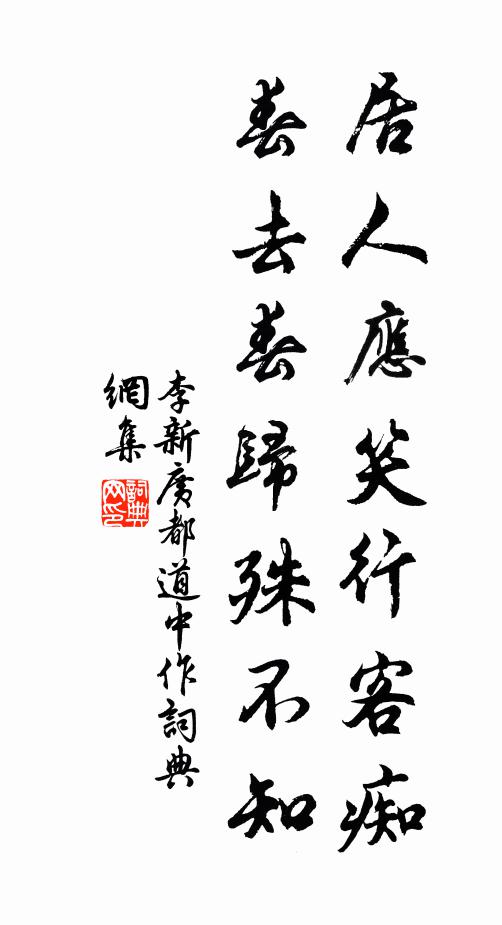 居人應笑行客痴
春去春歸殊不知
李新廣都道中作詞典
網集
詞典網印